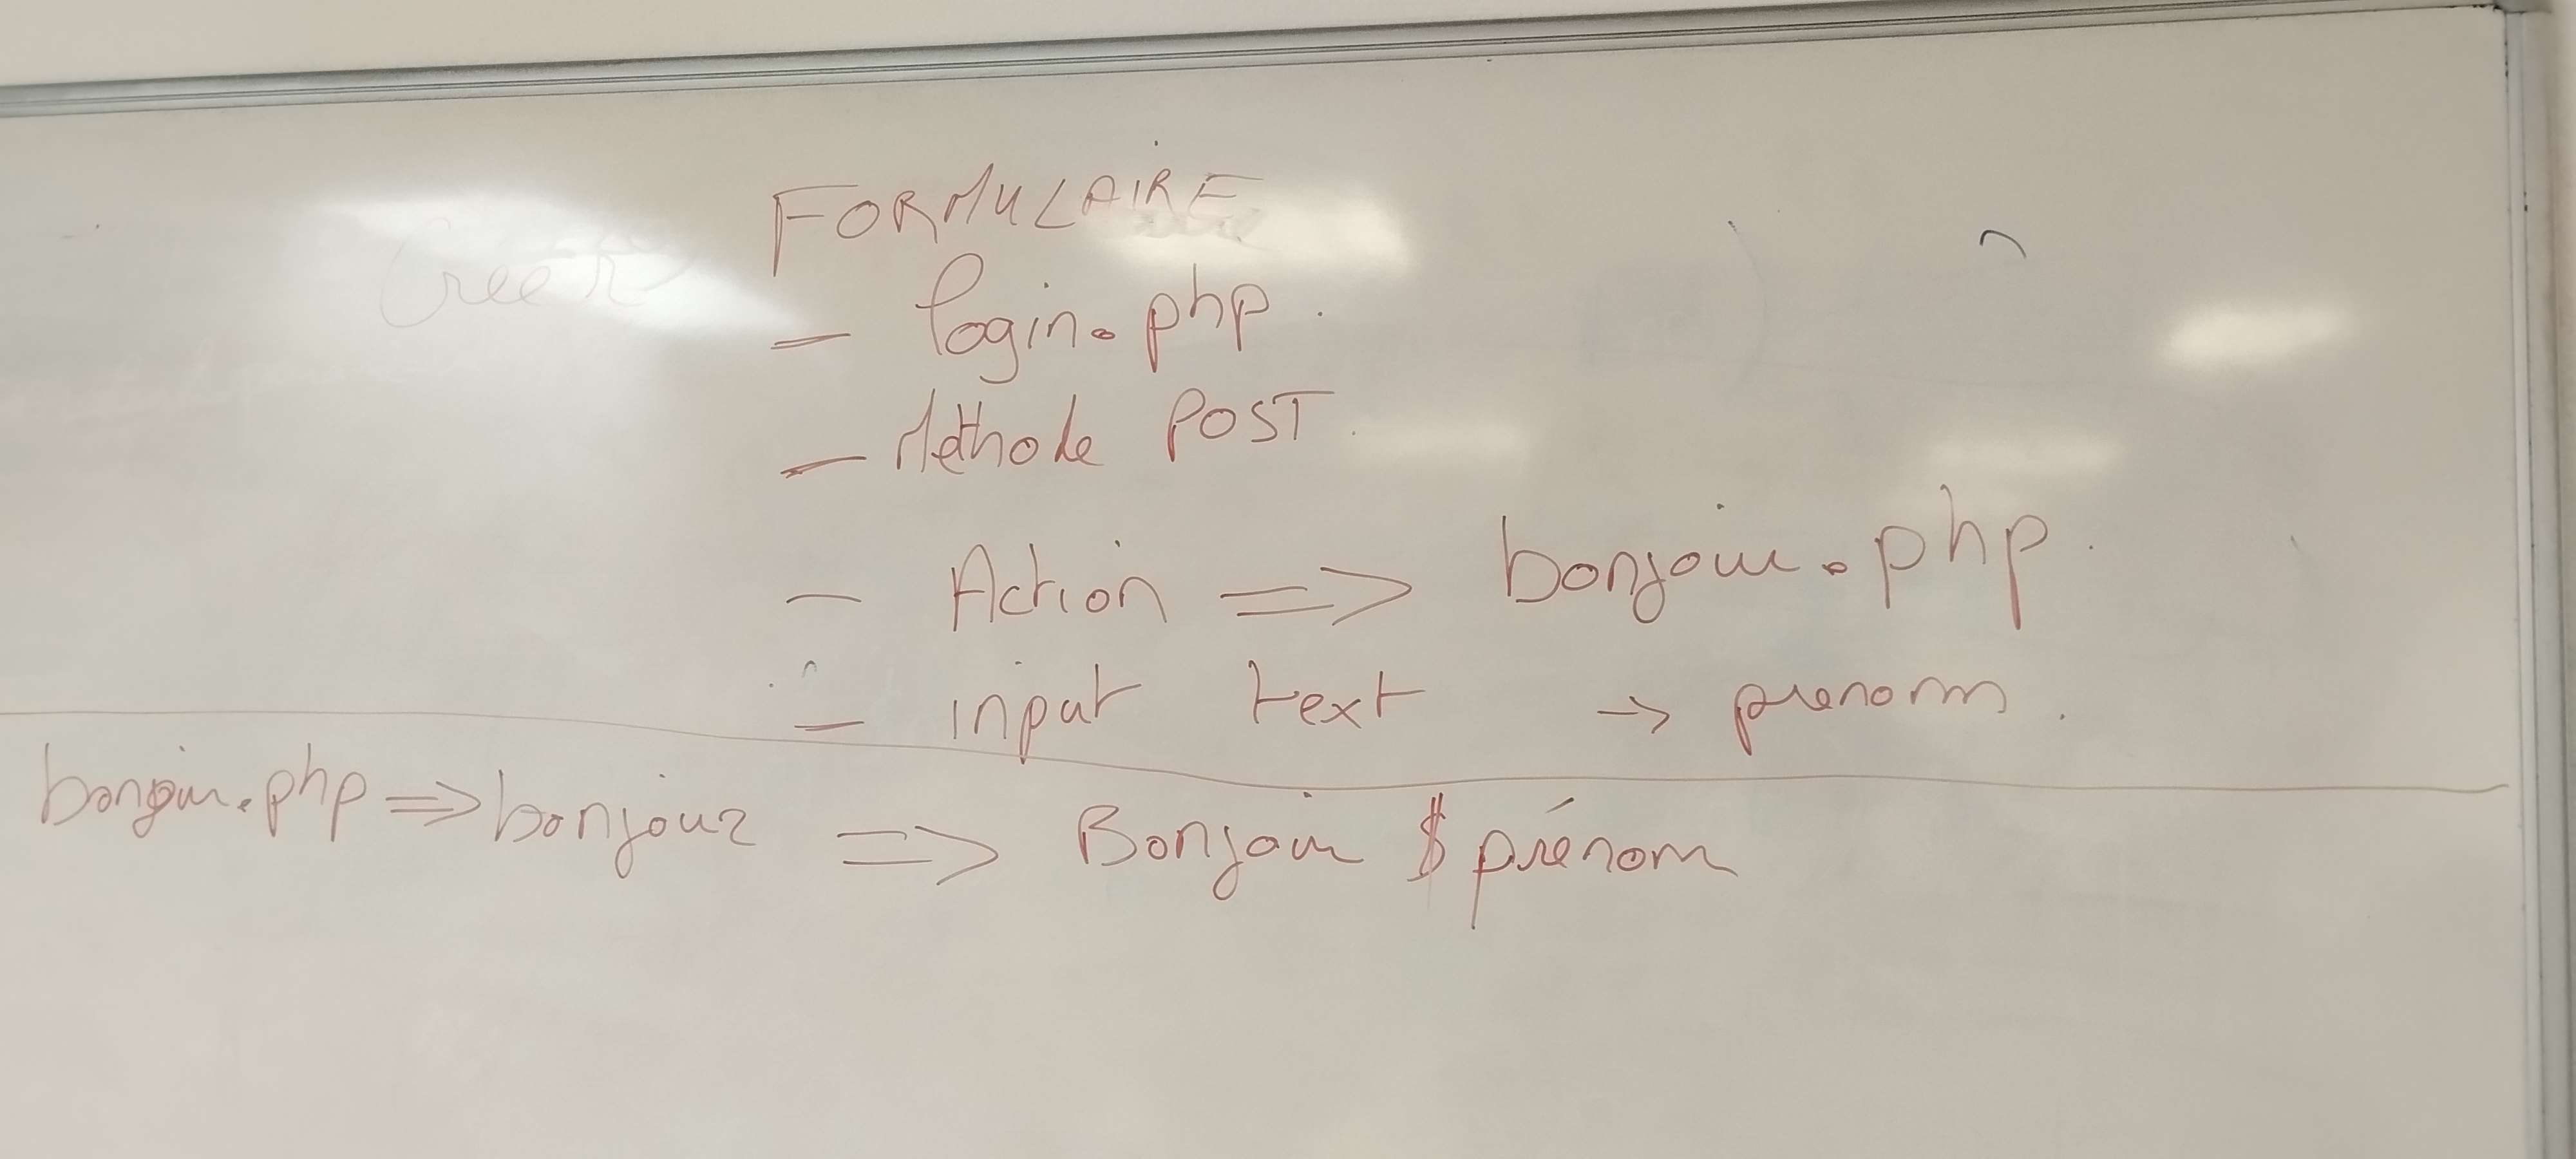 FORMULAIRE
- login.php.
- Méthode POST.
- Action => bonjour.php.
- input text -> prenom.
bonjour.php => bonjour => Bonjour $prénom